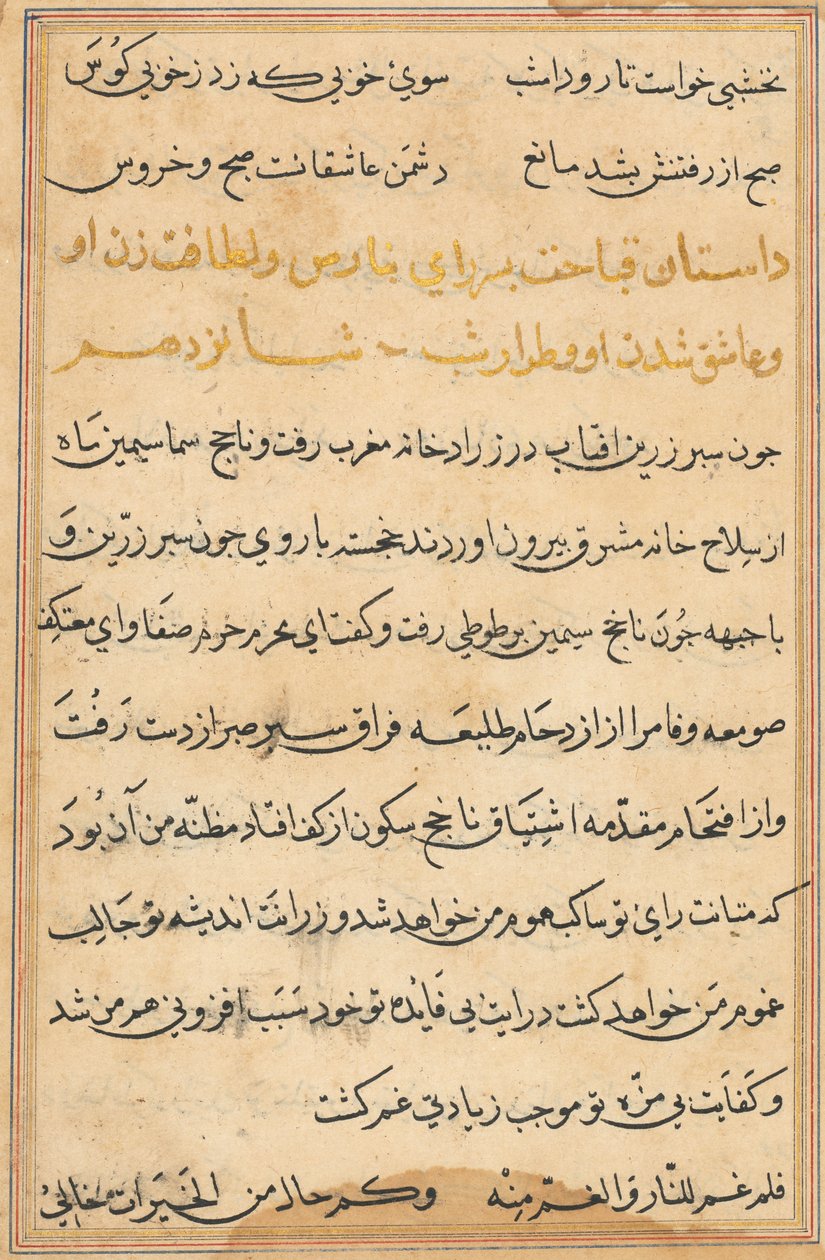 نخشبي خواست تا رود امشب سوئ خوبي كه زد ز خوبي كُوسَ
صبح از رفتنش بشد مانع دشمَن عاشقانست صبح و خروس
داستان قباحت بهراي بنارس و لطافت زن او
و عاشق شدن او و طرار شب شانزدهم
جون سبر زرين افتاب در زراد خانه مغرب رفت و ناجخ سما سيمين مَاه
از سِلاح خانه مشرق بيرون اوردند خجسته با روي جون سبر زرّين وَ
با جبهه جُونَ ناجخ سيمين بر طوطي رفت و كفت اي محرم حرم صفَا و اي معتكِف
صومعه وفا مرا از ازدحَام طليعَه فراق سبر صبر از دست رَفْتَ
و از افتحَام مقدّمه اشتِيَاق ناجخ سكون از كف افتاد مظنّه من آن بُودَ
كه متانت راي تو ساكب هموم من خواهد شد و زرانَت انديشه تو جَالِب
غموم مَن خواهد كشت درايت بي فَائده تو خود سَبَب افزوني هم من شد
و كفَايَت بي مزّه تو موجب زيادتي غم كشت
فلم غم للنّار وَ الغمّ مِنْه وكم حال من الخَيرَات